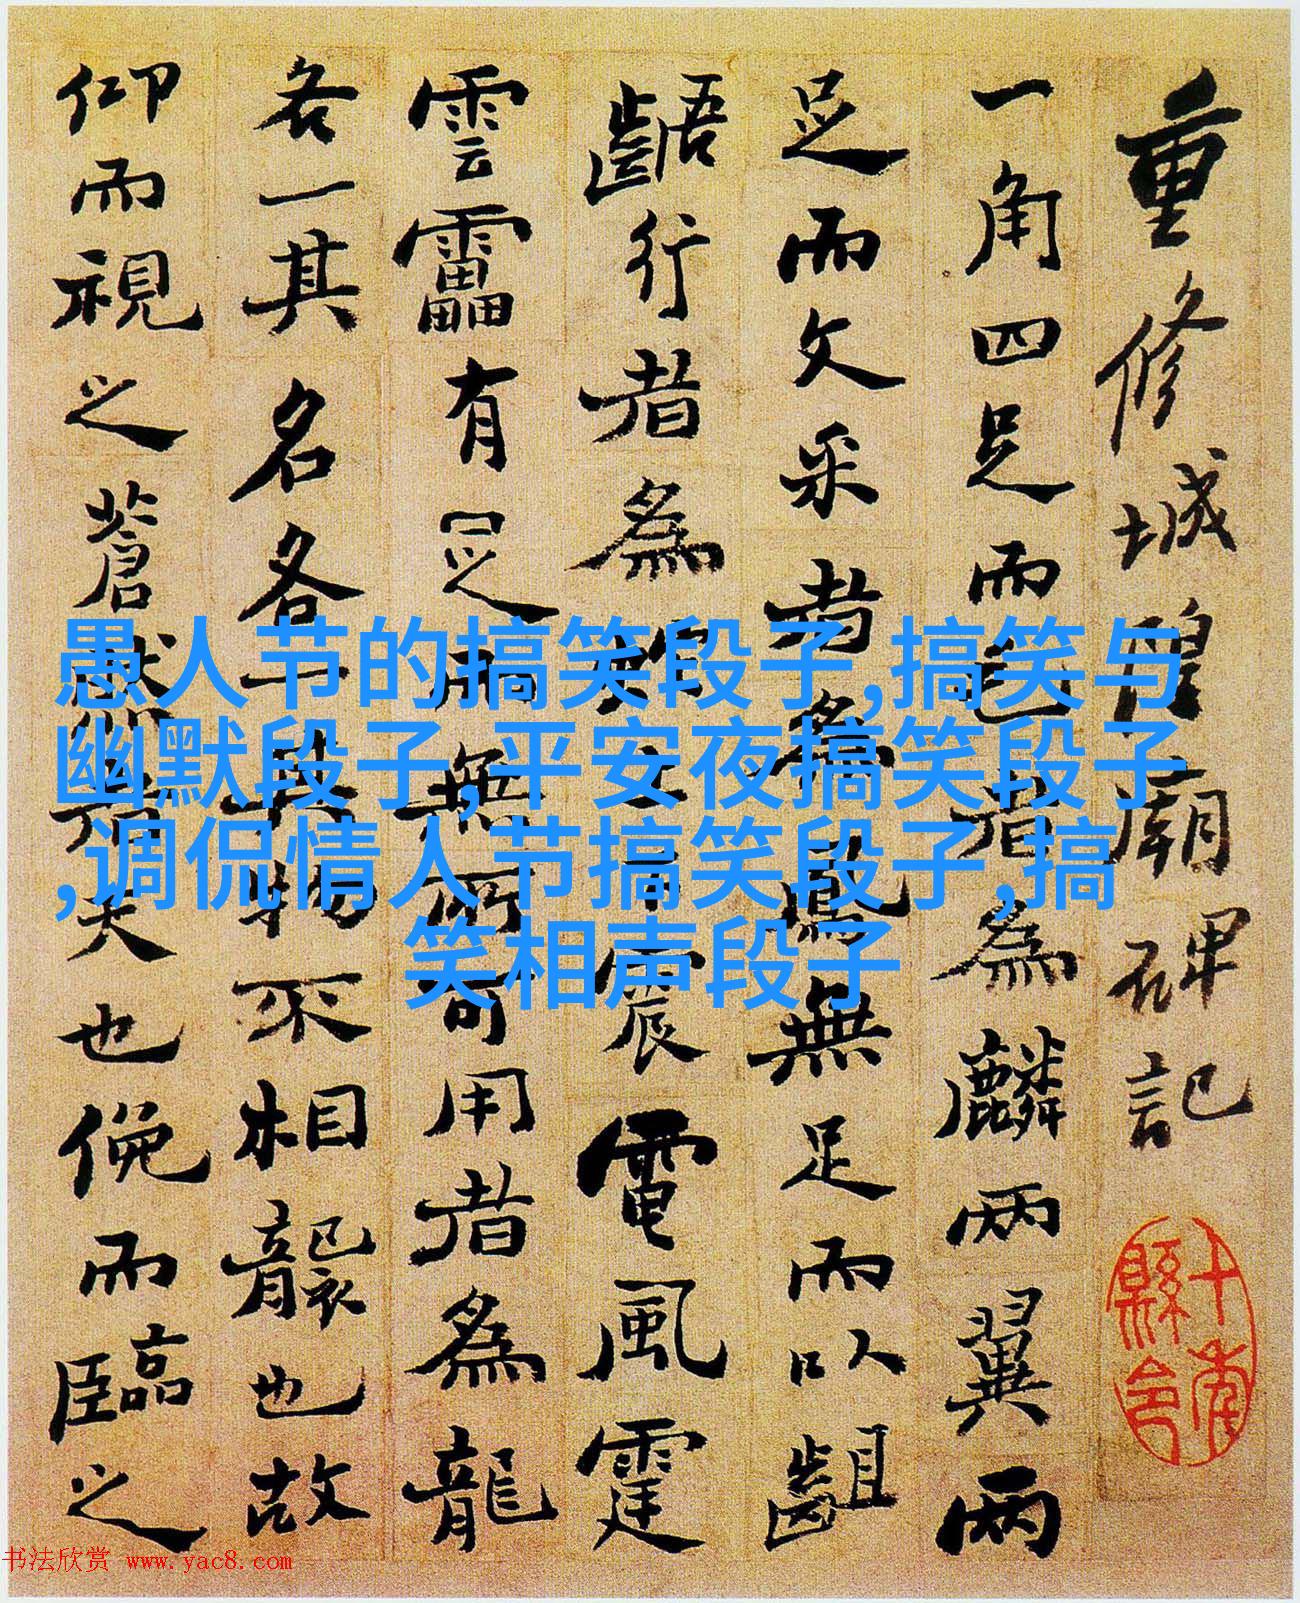 重修城隍廟碑記
一角四足而毛者為麟兩翼兩
足而文采者為鳳無足而以齟
齬行者為蛇上下震電風霆
雲靁有足而無所可用者為龍
各一其名各一其物不相襲也故
仰而視之蒼然者天也俛而臨之
愚人节的搞笑段子,搞笑与
幽默段子,平安夜搞笑段子
,调侃情人节搞笑段子,搞
笑相声段子
书法欣赏 www.yac8.com